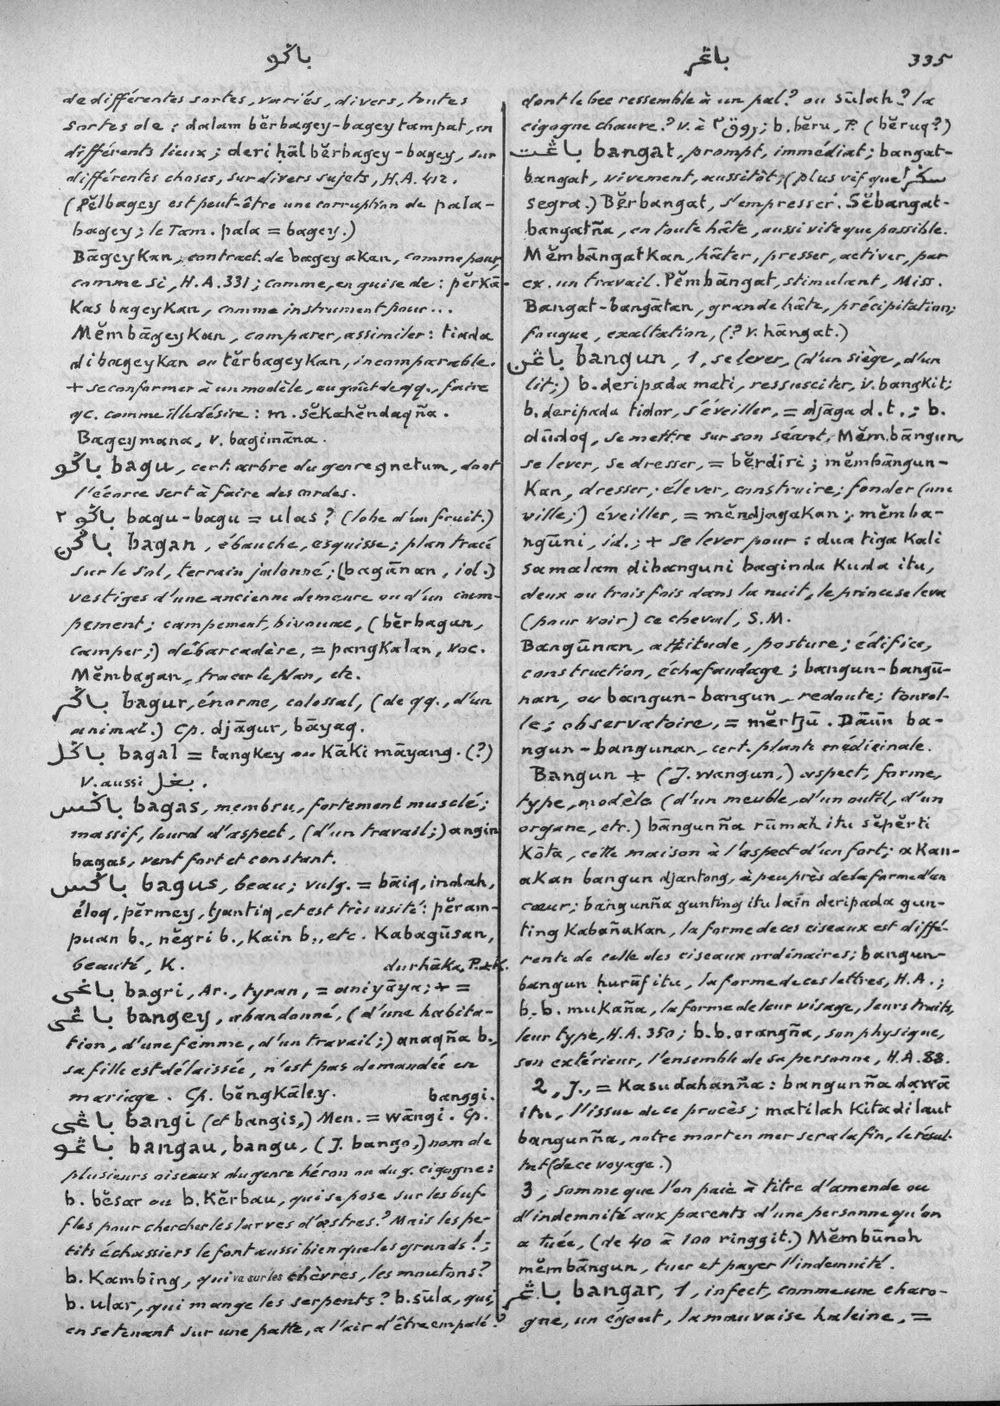 باݢو
باڠر
335
de différentes sortes, variés, divers, toutes
sortes de : dalam bĕrbagey-bagey tampat, en
différents lieux ; deri hāl bĕrbagey-bagey, sur
différentes choses, sur divers sujets, H.A. 412.
(Pĕlbagey est peut-être une corruption de pala-
bagey ; le Tam. pala = bagey.)
Bāgeykan, contract. de bagey akan, comme pour,
comme si, H.A. 331 ; comme, en guise de : pĕrkā-
kas bageykan, comme instrument pour...
Mĕmbāgeykan, comparer, assimiler : tiada
dibageykan ou tĕrbageykan, incomparable.
+ se conformer à un modèle, au goût de qq., faire
qc. comme il le désire : m. sĕkahĕndaqña.
Bageymana, v. bagimāna.
باݢو bagu, cert. arbre du genre gnetum, dont
l'écorce sert à faire des cordes.
باݢو ٢ bagu-bagu = ulas ? (lobe d'un fruit.)
باݢن bagan, ébauche, esquisse ; plan tracé
sur le sol, terrain jalonné ; (bagānan, id.)
vestiges d'une ancienne demeure ou d'un cam-
pement ; campement, bivouac, (bĕrbagan,
camper ;) débarcadère, = pangkalan, voc.
Mĕmbagan, tracer le plan, etc.
باݢر bagur, énorme, colossal, (de qq., d'un
animal.) Cp. djāgur, bāyaq.
باݢل bagal = tangkey ou kāki māyang. (?)
V. aussi بغل.
باݢس bagas, membru, fortement musclé ;
massif, lourd d'aspect, (d'un travail ;) angin
bagas, vent fort et constant.
باݢس bagus, beau ; vulg. = bāiq, indah,
éloq, pĕrmey, tjantiq, et est très usité : pĕram-
puan b., nĕgri b., kain b., etc. Kabagūsan,
beauté, K.
durhāka, P. + K.
باغى bagri, Ar., tyran, = aniyāya ; + =
باڠى bangey, abandonné, (d'une habita-
tion, d'une femme, d'un travail ;) anaqña b.,
sa fille est délaissée, n'est pas demandée en
mariage. Cp. bĕngkāley.
banggi.
باڠى bangi (et bangis,) Men. = wāngi. Cp.
باڠو bangau, bangu, (J. bango,) nom de
plusieurs oiseaux du genre héron ou du g. cigogne :
b. bĕsar ou b. kĕrbau, qui se pose sur les buf-
fles pour chercher les larves d'œstres ? Mais les pe-
tits échassiers le font aussi bien que les grands ! ;
b. kambing, qui va sur les chèvres, les moutons ?
b. ular, qui mange les serpents ? b. sūla, qui,
en se tenant sur une patte, a l'air d'être empalé ?
dont le bec ressemble à un pal ? ou sūlah ? la
cigogne chauve ? v. à ; b. bĕru, P. (bĕruq ?)
باڠت bangat, prompt, immédiat ; bangat-
bangat, vivement, aussitôt ; (plus vif que سݢرا
segra.) Bĕrbangat, s'empresser. Sĕbangat-
bangatña, en toute hâte, aussi vite que possible.
Mĕmbāngatkan, hâter, presser, activer, par
ex. un travail. Pĕmbāngat, stimulant, Miss.
Bangat-bangātan, grande hâte, précipitation ;
fougue, exaltation, (? v. hāngat.)
باڠن bangun, 1, se lever, (d'un siège, d'un
lit ;) b. deripada mati, ressusciter, v. bangkit ;
b. deripada tidor, s'éveiller, = djāga d. t. ; b.
dūdoq, se mettre sur son séant, Mĕm.bāngun,
se lever, se dresser, = bĕrdiri ; mĕmbāngun-
kan, dresser, élever, construire ; fonder (une
ville ;) éveiller, = mĕndjagakan ; mĕmba-
ngūni, id. ; + se lever pour : dua tiga kali
samalam dibanguni baginda kuda itu,
deux ou trois fois dans la nuit, le prince se leva
(pour voir) ce cheval, S.M.
Bangūnan, attitude, posture ; édifice,
construction, échafaudage ; bangun-bangū-
nan, ou bangun-bangun, redoute ; tourel-
le ; observatoire, = mĕrtjū. Dāūn ba-
ngun-bangunan, cert. plante médicinale.
Bangun + (J. wangun,) aspect, forme,
type, modèle (d'un meuble, d'un outil, d'un
organe, etc.) bāngunña rūmah itu sĕpĕrti
kōta, cette maison à l'aspect d'un fort ; akan-
akan bangun djantong, à peu près de la forme d'un
cœur ; bangunña gunting itu laín deripada gun-
ting kabañakan, la forme de ces ciseaux est diffé-
rente de celle des ciseaux ordinaires ; bangun-
bangun ḥurūf itu, la forme de ces lettres, H.A. ;
b.b. mukaña, la forme de leur visage, leurs traits,
leur type, H.A. 350 ; b.b. orangña, son physique,
son extérieur, l'ensemble de sa personne, H.A. 88.
2, J., = Kasudahanña : bangunña dawā
itu, l'issue de ce procès ; matilah kita di laut
bangunña, notre mort en mer sera la fin, le résul-
tat (de ce voyage.)
3, somme que l'on paie à titre d'amende ou
d'indemnité aux parents d'une personne qu'on
a tuée, (de 40 à 100 ringgit.) Mĕmbūnoh
mĕmbāngun, tuer et payer l'indemnité.
باڠر bangar, 1, infect, comme une charo-
gne, un égout, la mauvaise haleine, =